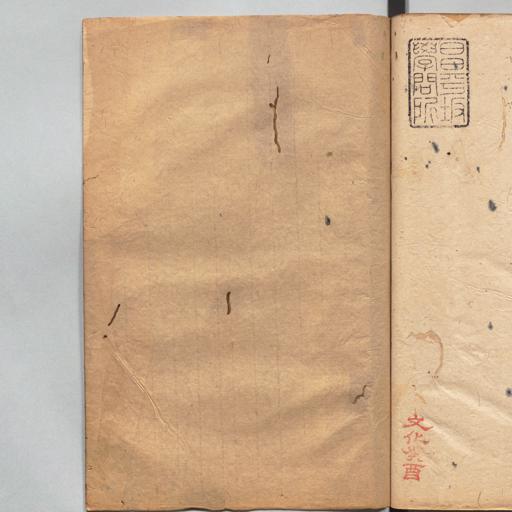 昌平坂
學問所
文化癸酉